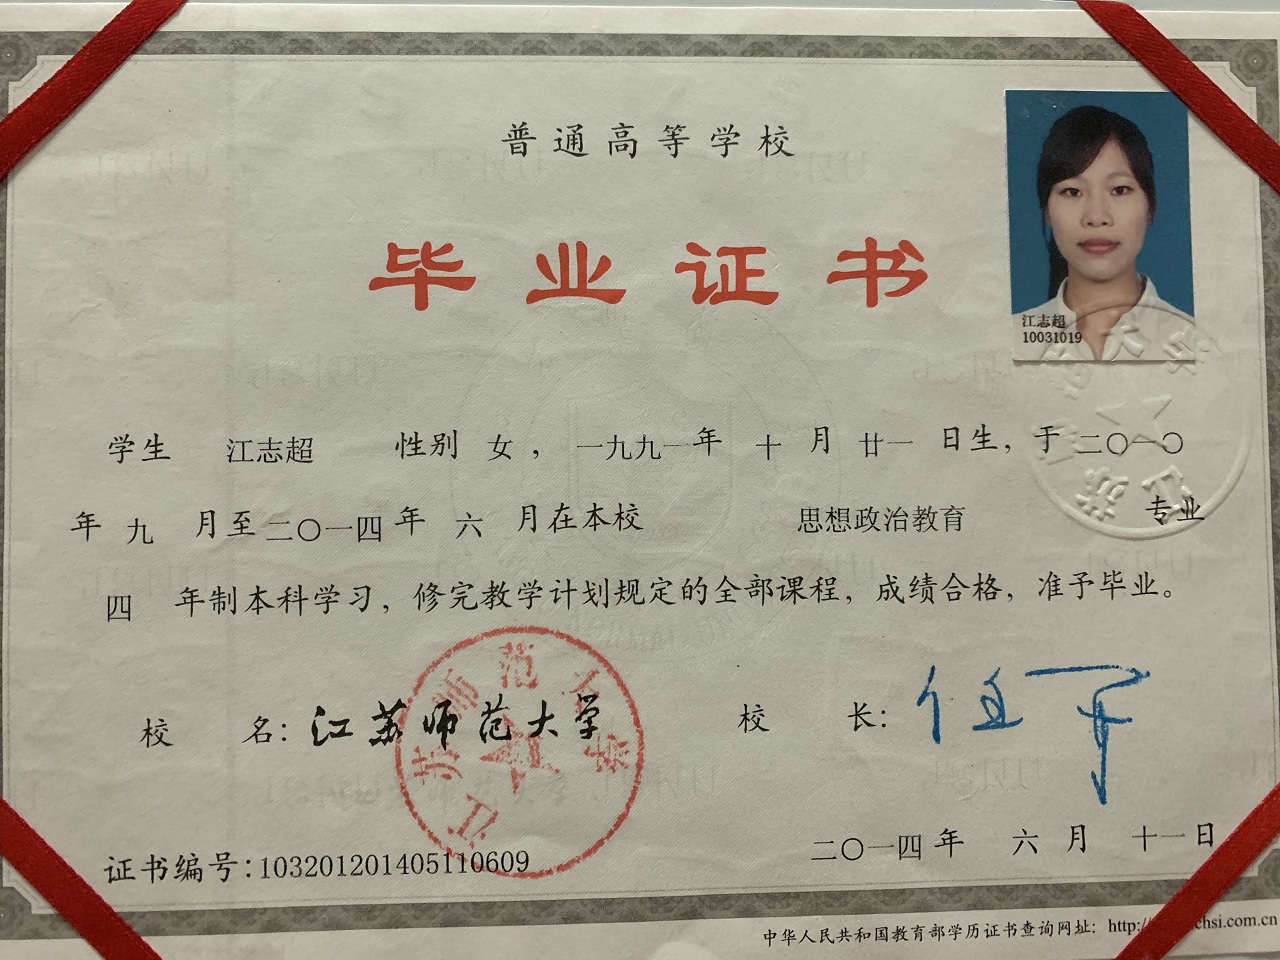 普通高等学校
毕业证书
江志超
10031019
学生 江志超 性别 女，一九九一年 十 月 廿一 日生，于二〇一〇
年 九 月至二〇一四年 六 月在本校 思想政治教育 专业
四 年制本科学习，修完教学计划规定的全部课程，成绩合格，准予毕业。
校 名：江苏师范大学
校 长：任平
江苏师范大学
二〇一四年 六 月 十一日
证书编号：103201201405110609
中华人民共和国教育部学历证书查询网址：http:// chsi.com.cn